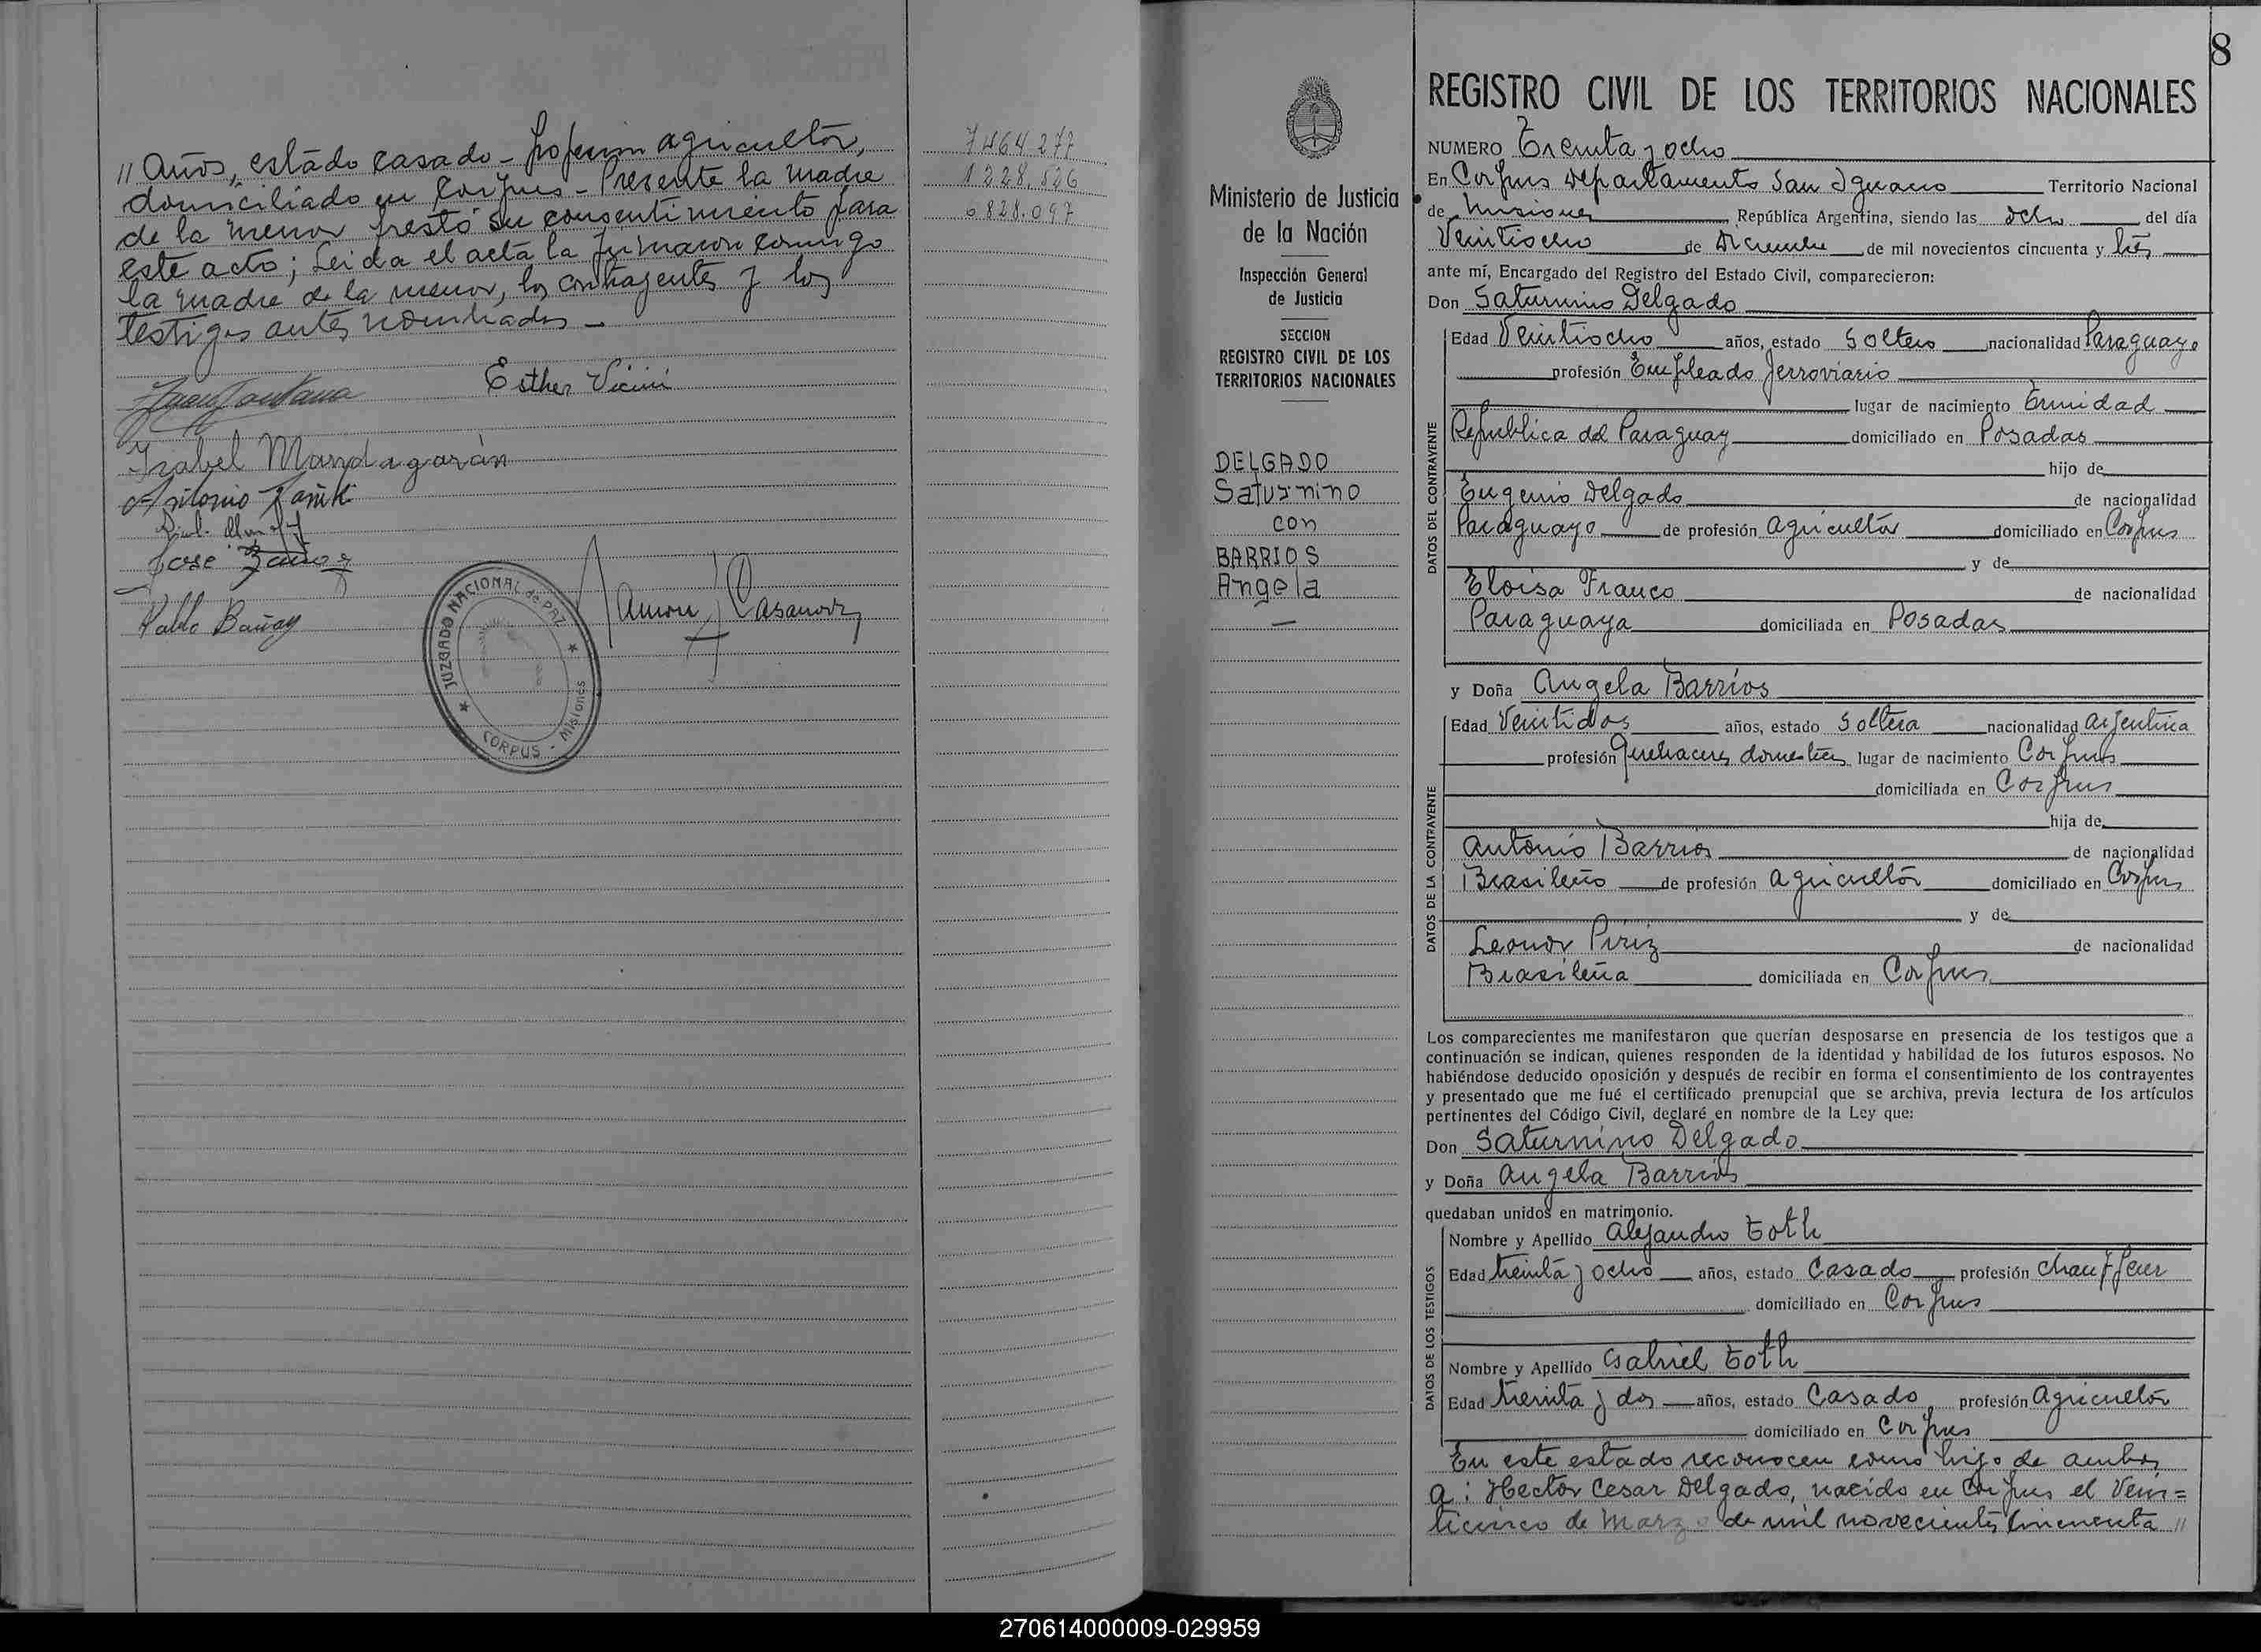 " Años, estado casado - profesion agricultor,
domiciliado en Corpus - Presente la madre
de la menor prestó su consentimiento para
este acto; Leida el acta la firmaron conmigo
la madre de la menor, los contrayentes y los
testigos antes nombrados -
Juan Fontana
Esther Vicini
Isabel Mandagarán
Antonio
José
Pablo
Ramón J Casanova
JUZGADO NACIONAL de PAZ
CORPUS - Misiones
7464277
1228.526
6828.097
8
Ministerio de Justicia
de la Nación
Inspección General
de Justicia
SECCION
REGISTRO CIVIL DE LOS
TERRITORIOS NACIONALES
DELGADO
Saturnino
con
BARRIOS
Angela
REGISTRO CIVIL DE LOS TERRITORIOS NACIONALES
NUMERO Treinta y ocho
En Corpus Departamento San Ignacio Territorio Nacional
de Misiones República Argentina, siendo las ocho del día
Veintiocho de Diciembre de mil novecientos cincuenta y tres
ante mí, Encargado del Registro del Estado Civil, comparecieron:
Don Saturnino Delgado
DATOS DEL CONTRAYENTE
Edad Veintiocho años, estado Soltero nacionalidad Paraguayo
profesión Empleado Ferroviario
lugar de nacimiento Trinidad
Republica del Paraguay domiciliado en Posadas
hijo de
Eugenio Delgado de nacionalidad
Paraguayo de profesión agricultor domiciliado en Corpus
y de
Eloisa Franco de nacionalidad
Paraguaya domiciliada en Posadas
y Doña Angela Barrios
DATOS DE LA CONTRAYENTE
Edad Veintidos años, estado Soltera nacionalidad argentina
profesión quehaceres domesticos lugar de nacimiento Corpus
domiciliada en Corpus
hija de
Antonio Barrios de nacionalidad
Brasileño de profesión agricultor domiciliado en Corpus
y de
Leonor Piriz de nacionalidad
Brasileña domiciliada en Corpus
Los comparecientes me manifestaron que querían desposarse en presencia de los testigos que a
continuación se indican, quienes responden de la identidad y habilidad de los futuros esposos. No
habiéndose deducido oposición y después de recibir en forma el consentimiento de los contrayentes
y presentado que me fué el certificado prenupcial que se archiva, previa lectura de los artículos
pertinentes del Código Civil, declaré en nombre de la Ley que:
Don Saturnino Delgado
y Doña Angela Barrios
quedaban unidos en matrimonio.
DATOS DE LOS TESTIGOS
Nombre y Apellido Alejandro Toth
Edad treinta y ocho años, estado Casado profesión chauffeur
domiciliado en Corpus
Nombre y Apellido Gabriel Toth
Edad treinta y dos años, estado Casado profesión agricultor
domiciliado en Corpus
En este estado reconocen como hijo de ambos
a: Hector Cesar Delgado, nacido en Corpus el Vein=
ticinco de Marzo de mil novecientos cincuenta "
270614000009-029959